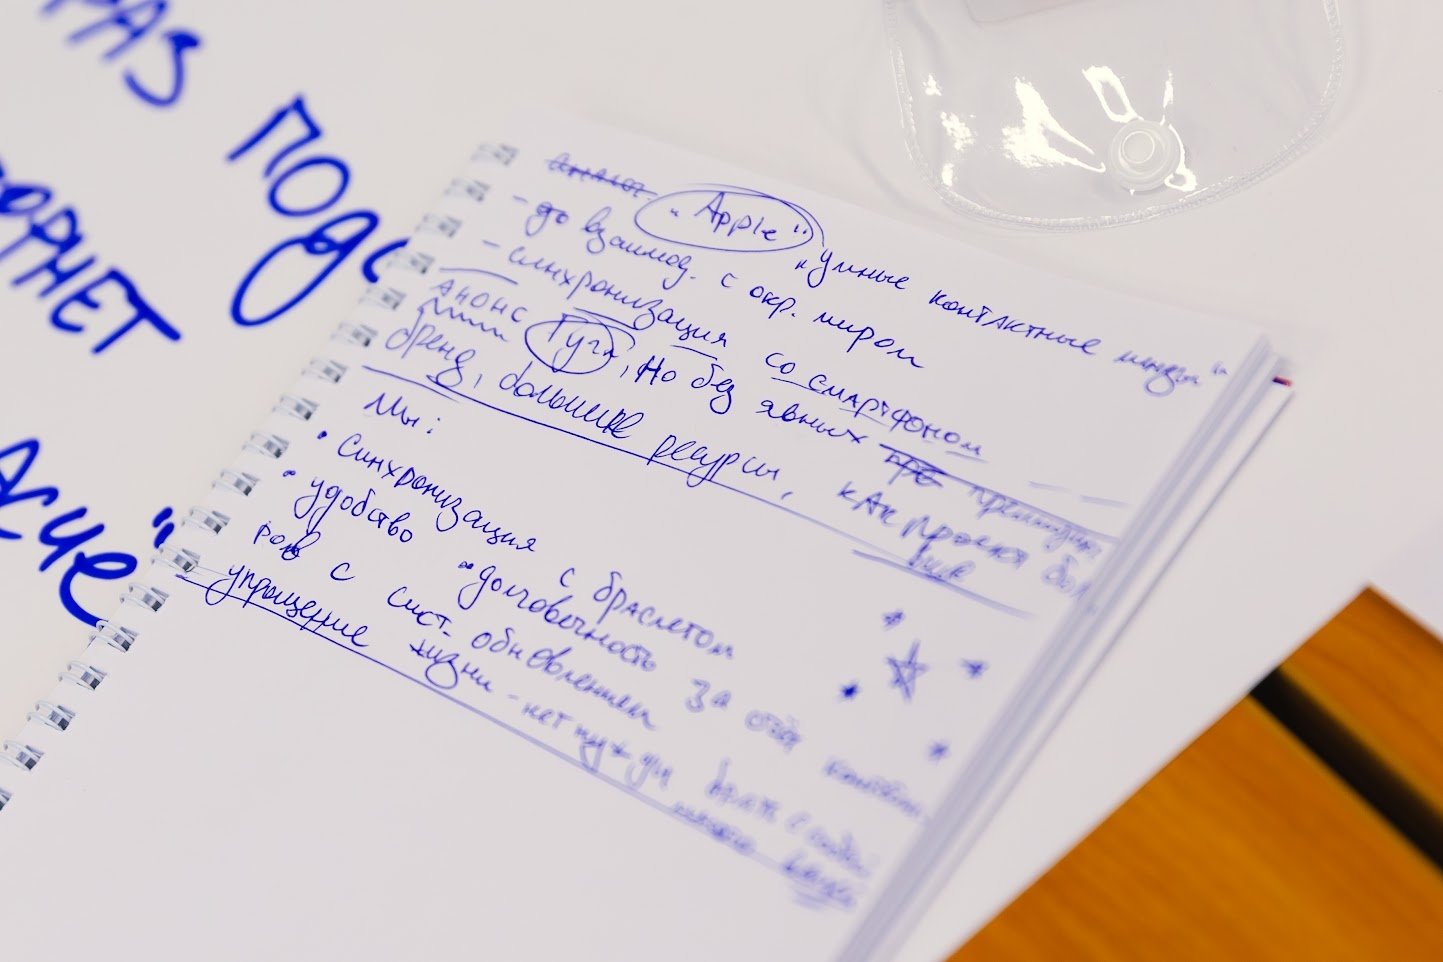 РАЗ ПОДС
ОРНЕТ
АСЧЕ"
Аналог "Apple" "Умные контактные линзы"
- до взаимод. с окр. миром
- синхронизация со смартфоном
Анонс Гугл, но без явных преимущ.
бренд, большие ресурсы, как проект
Мы:
• синхронизация с браслетом
• удобство • долговечность за счёт
с сист. обновлением
упрощение жизни - нет нужды брать с